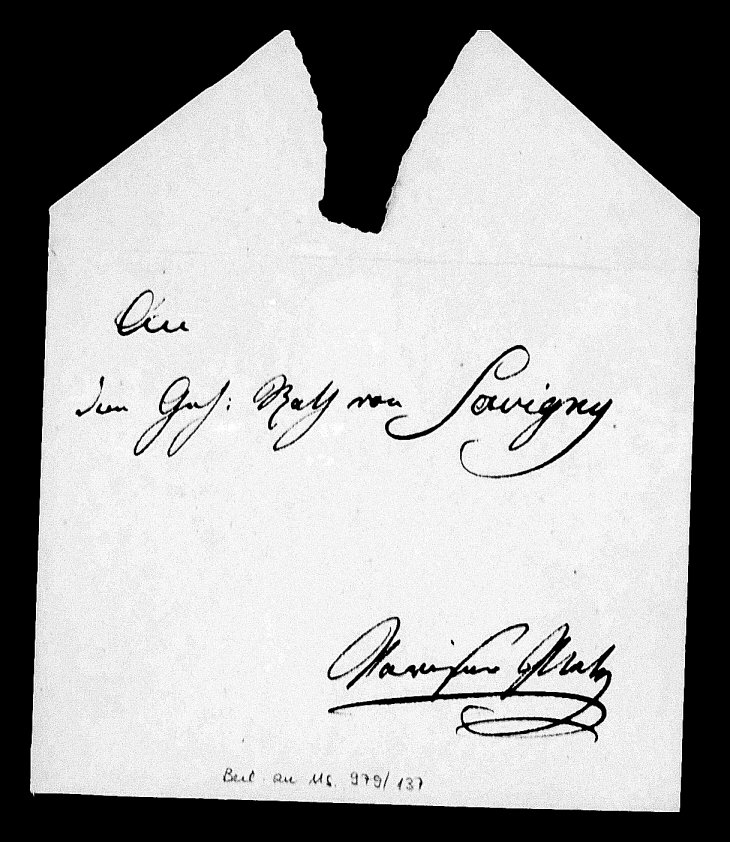 An
den Geh: Rath von Savigny
Pariser Platz
Beil. an Ms. 979/137